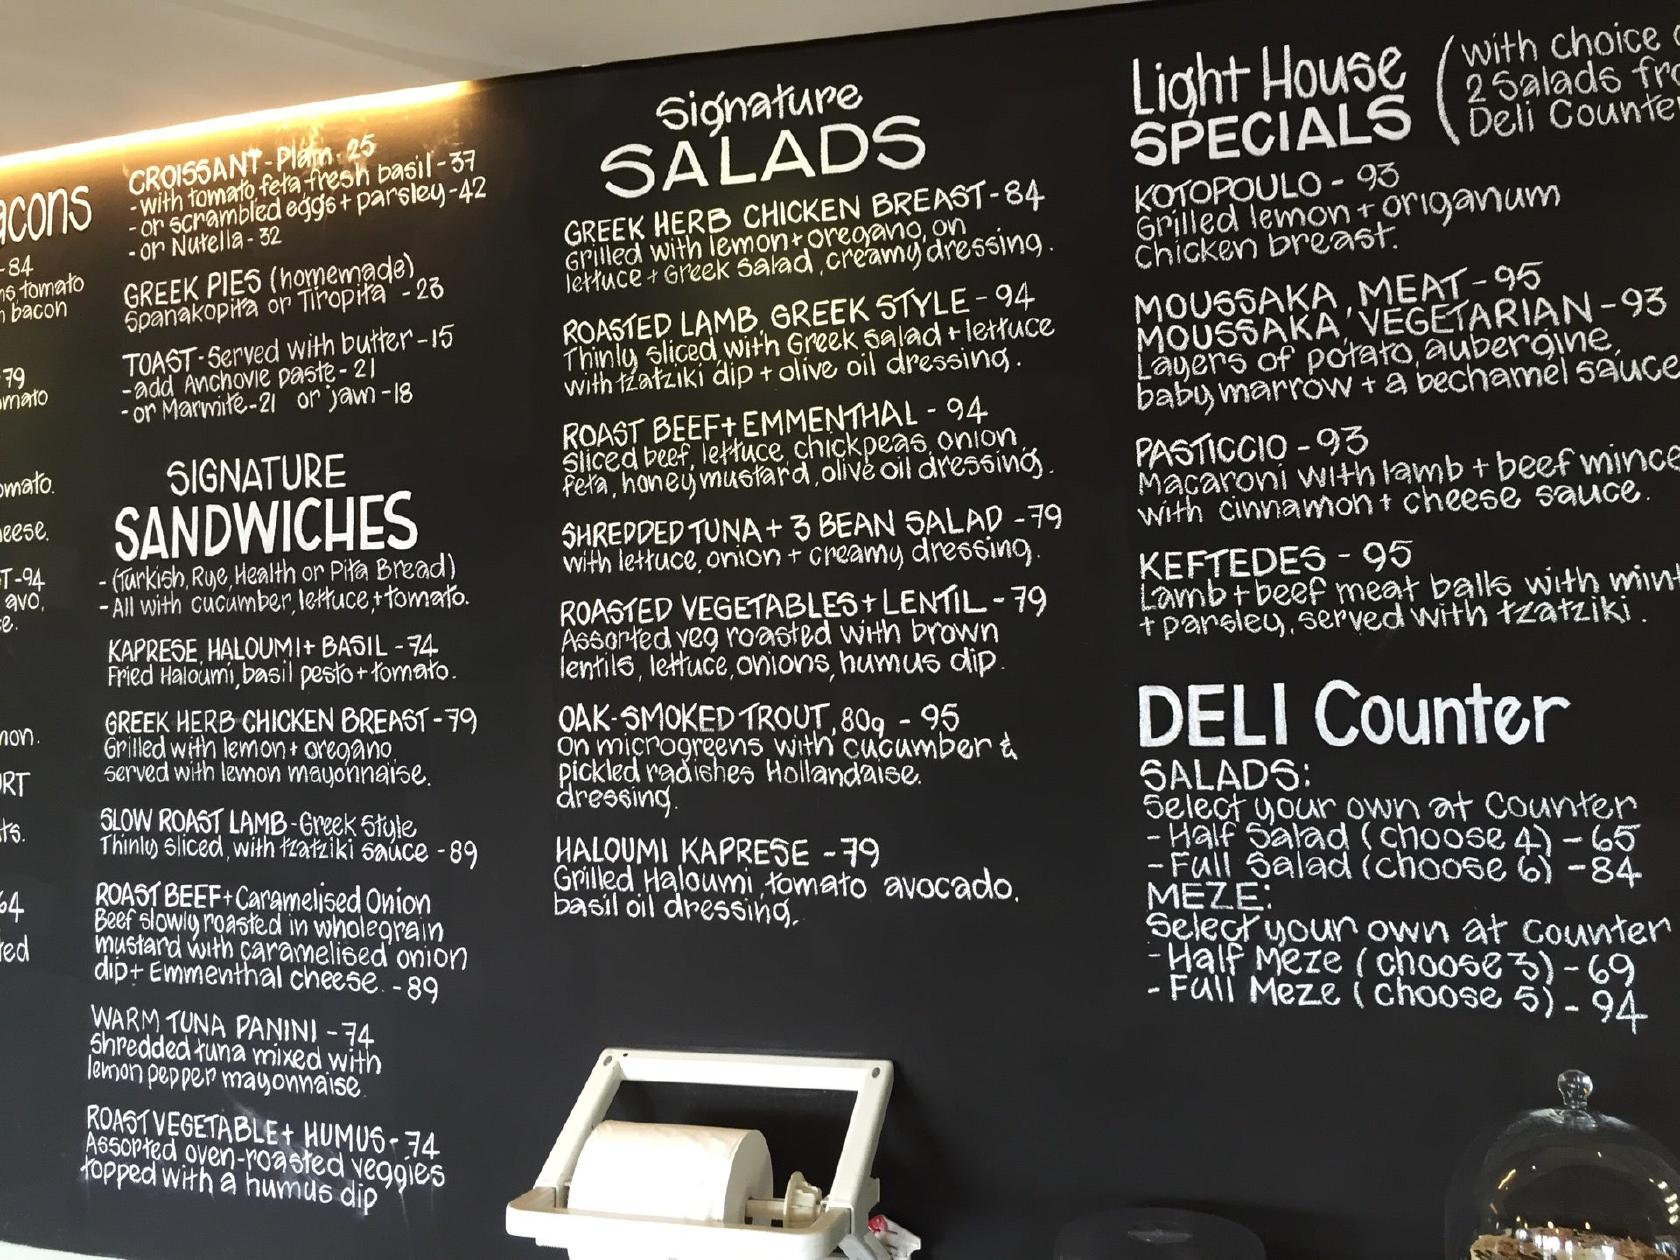 acons
-84
tomato
bacon
79
omato
omato.
eese.
T-94
avo,
e.
non.
RT
ts.
64
ed
CROISSANT - Plain - 25
- with tomato, feta, fresh basil - 37
- or scrambled eggs + parsley - 42
- or Nutella - 32
GREEK PIES (homemade)
Spanakopita or Tiropita - 23
TOAST - Served with butter - 15
- add Anchovie paste - 21
- or Marmite - 21 or jam - 18
SIGNATURE
SANDWICHES
- (Turkish, Rye, Health or Pita Bread)
- All with cucumber, lettuce, + tomato.
KAPRESE, HALOUMI + BASIL - 74
Fried Haloumi, basil pesto + tomato.
GREEK HERB CHICKEN BREAST - 79
Grilled with lemon + oregano,
served with lemon mayonnaise.
SLOW ROAST LAMB - Greek Style
Thinly sliced, with tzatziki sauce - 89
ROAST BEEF + Caramelised Onion
Beef slowly roasted in wholegrain
mustard with caramelised onion
dip + Emmenthal cheese. - 89
WARM TUNA PANINI - 74
Shredded tuna mixed with
lemon pepper mayonnaise.
ROAST VEGETABLE + HUMUS - 74
Assorted oven-roasted veggies
topped with a humus dip
Signature
SALADS
GREEK HERB CHICKEN BREAST - 84
Grilled with lemon + oregano, on
lettuce + Greek Salad, creamy dressing.
ROASTED LAMB, GREEK STYLE - 94
Thinly sliced, with Greek Salad + lettuce
with tzatziki dip + olive oil dressing.
ROAST BEEF + EMMENTHAL - 94
Sliced beef, lettuce, chickpeas, onion,
feta, honey mustard, olive oil dressing.
SHREDDED TUNA + 3 BEAN SALAD - 79
with lettuce, onion + creamy dressing.
ROASTED VEGETABLES + LENTIL - 79
Assorted veg roasted with brown
lentils, lettuce, onions, humus dip.
OAK-SMOKED TROUT, 80g - 95
On microgreens with cucumber &
pickled radishes Hollandaise.
dressing.
HALOUMI KAPRESE - 79
Grilled Haloumi, tomato avocado.
basil oil dressing.
Light House
SPECIALS
(with choice
2 Salads fro
Deli Counte
KOTOPOULO - 93
Grilled lemon + origanum
Chicken breast.
MOUSSAKA, MEAT - 95
MOUSSAKA, VEGETARIAN - 93
Layers of potato, aubergine,
baby marrow + a bechamel sauce
PASTICCIO - 93
Macaroni with lamb + beef mince
with cinnamon + cheese sauce.
KEFTEDES - 95
Lamb + beef meat balls with mint
+ parsley, served with tzatziki.
DELI Counter
SALADS:
Select your own at Counter
- Half Salad (choose 4) - 65
- Full Salad (choose 6) - 84
MEZE:
Select your own at counter
- Half Meze (choose 3) - 69
- Full Meze (choose 5) - 94